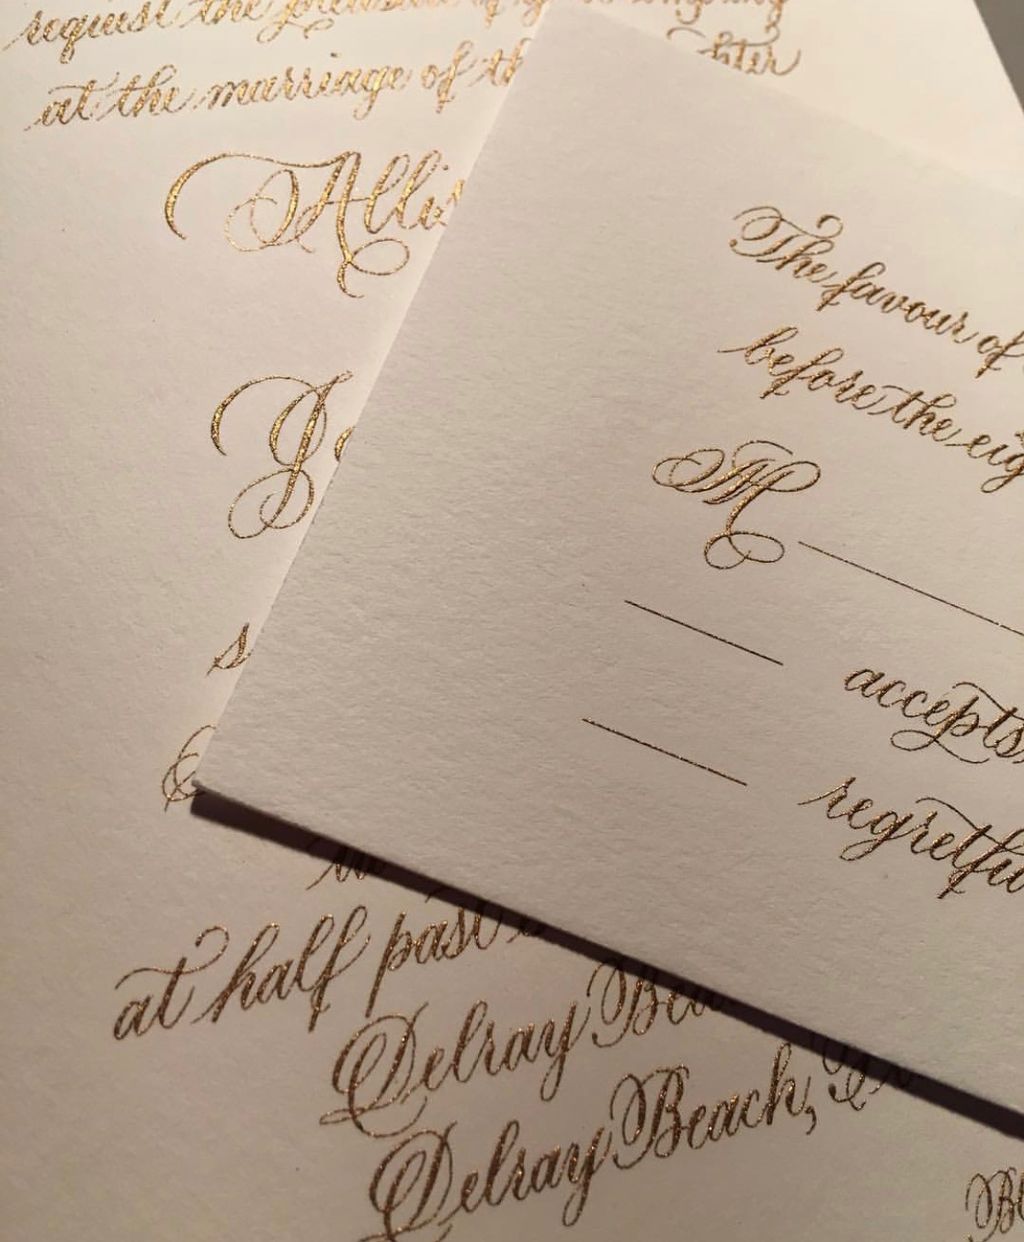 request the pleasure of your company
at the marriage of th hter
Allis
J
s
at half past
Delray Bea
Delray Beach, Fl
The favour of
before the eig
M
accepts
regretfu